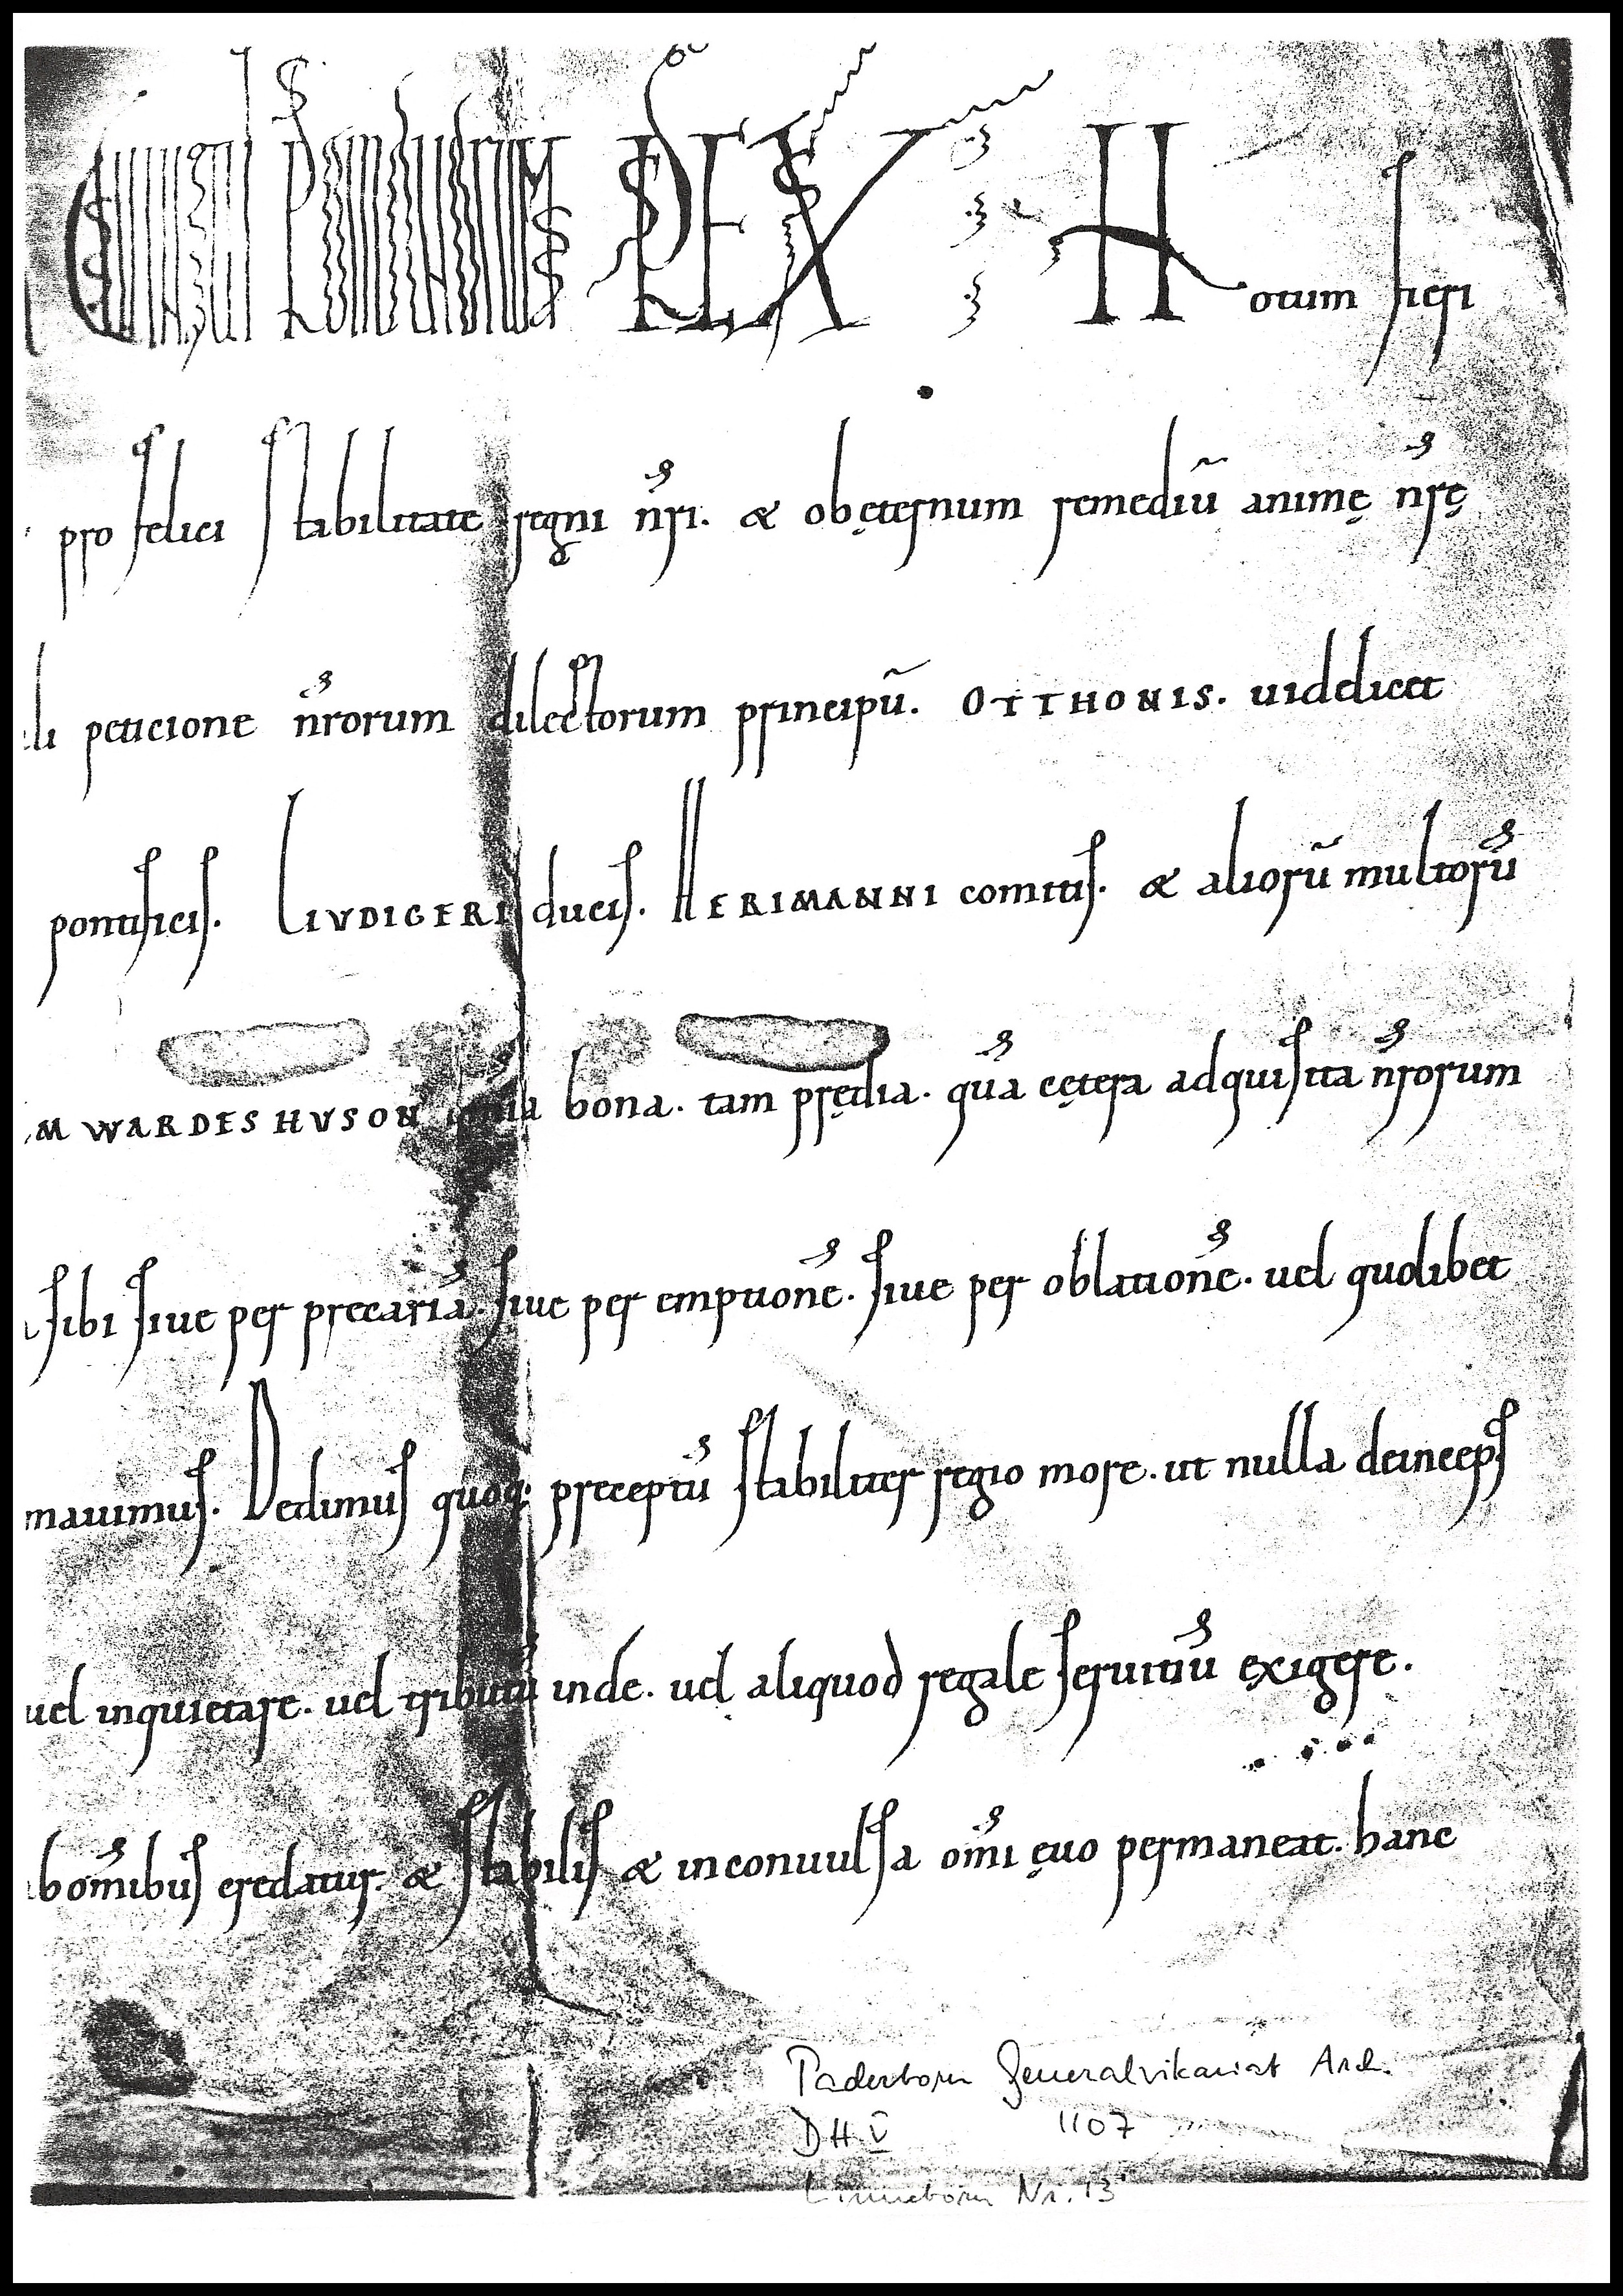 REX Notum fieri
pro felici stabilitate regni nr̄i. & ob ęternum remediū animę nr̄ę
li peticione nr̄orum dilectorum principū. OTTHONIS. uidelicet
pontificis. LIVDIGERI ducis. HERIMANNI comitis. & aliorū multorū
M WARDESHVSON bona. tam prędia. quā cętera adquisita nr̄orum
sibi siue per precariā. siue per emptionē. siue per oblationē. uel quolibet
mauimus. Dedimus quoq; preceptū stabiliter regio more. ut nulla deinceps
uel inquietare. uel tributū inde. uel aliquod regale seruitiū exigere.
ab om̄ibus credatur. & stabilis & inconuulsa om̄i ęuo permaneat. hanc
Paderborn Generalvikariat Arch.
DH V 1107
Linneborn Nr. 13